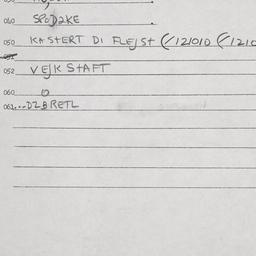 040 SPOD2KE
050 KASTERT DI FLEJST (/121010 (/1210
052 VEJKSTAFT
060
061...DZBRETL